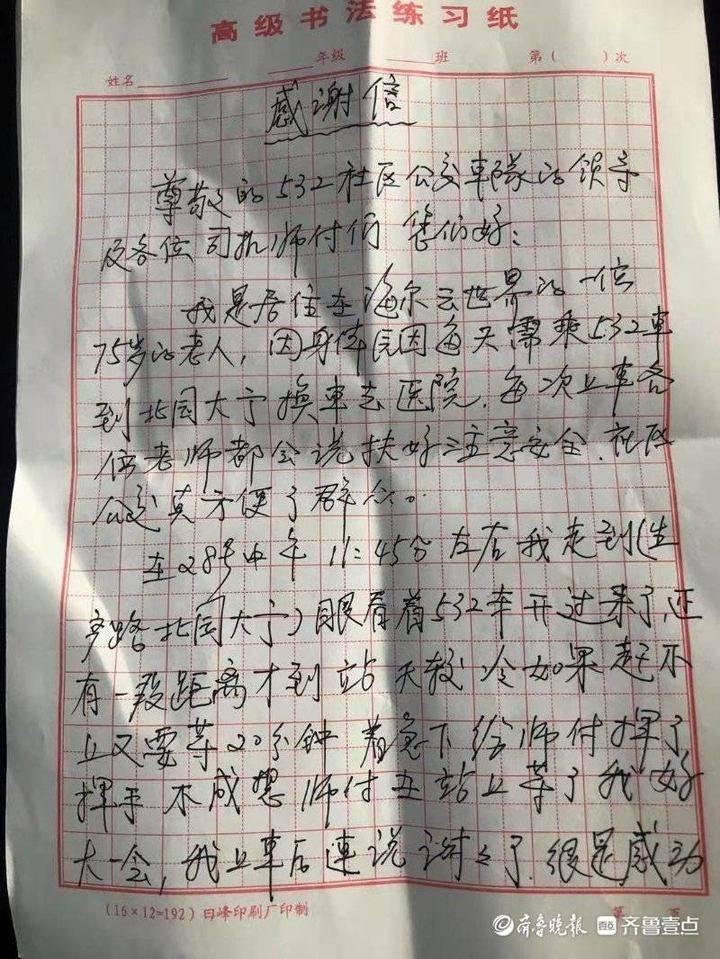 高级书法练习纸
姓名 年级 班 第( )次
感谢信
尊敬的532社区公交车队的领导
及各位司机师付们 您们好:
我是居住在海尔云世界的一位
75岁的老人,因身体原因每天需乘532车
到北园大宁换车去医院,每次上车各
位老师都会说扶好注意安全.社区
公交真方便了群众。
在28号中午11:45分左右我走到(生
产路北园大宁)眼看着532车开过来了,还
有一段距离才到站 天较冷如果赶不
上又要等20分钟 着急下给师付挥了
挥手 不成想师付在站上等了我好
大一会,我上车后连说谢谢了.很是感动
(16×12=192) 日峰印刷厂印制
第 页
齐鲁晚报 齐鲁壹点